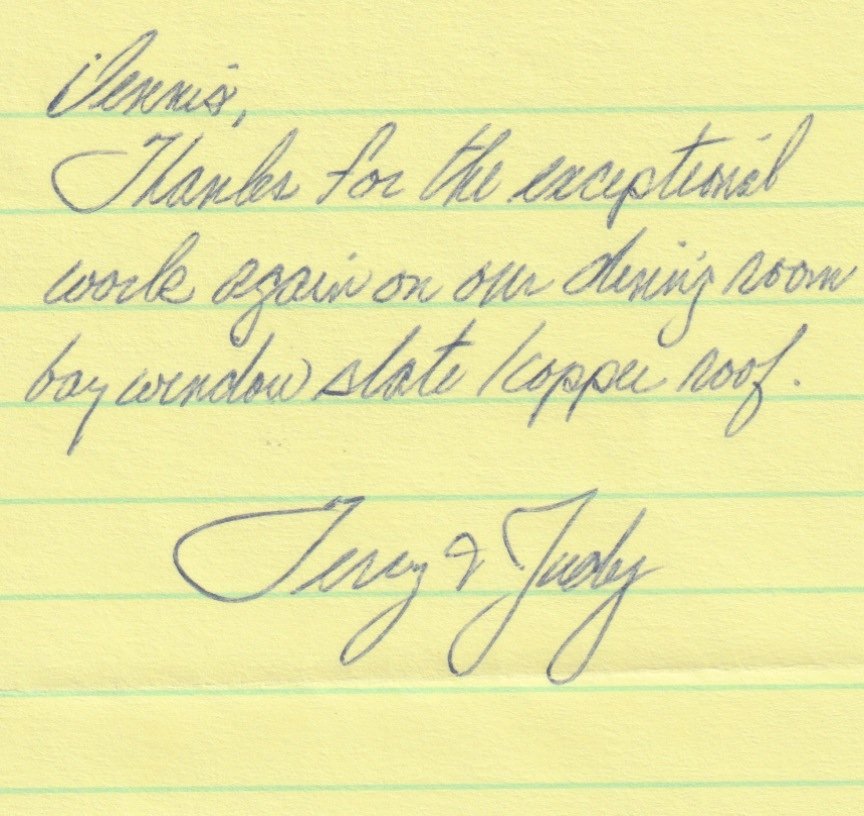 Dennis,
Thanks for the exceptional
work again on our dining room
bay window slate/copper roof.
Terry & Judy